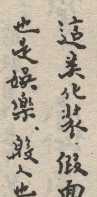 這类化装、假面
也是娛樂、殺人也